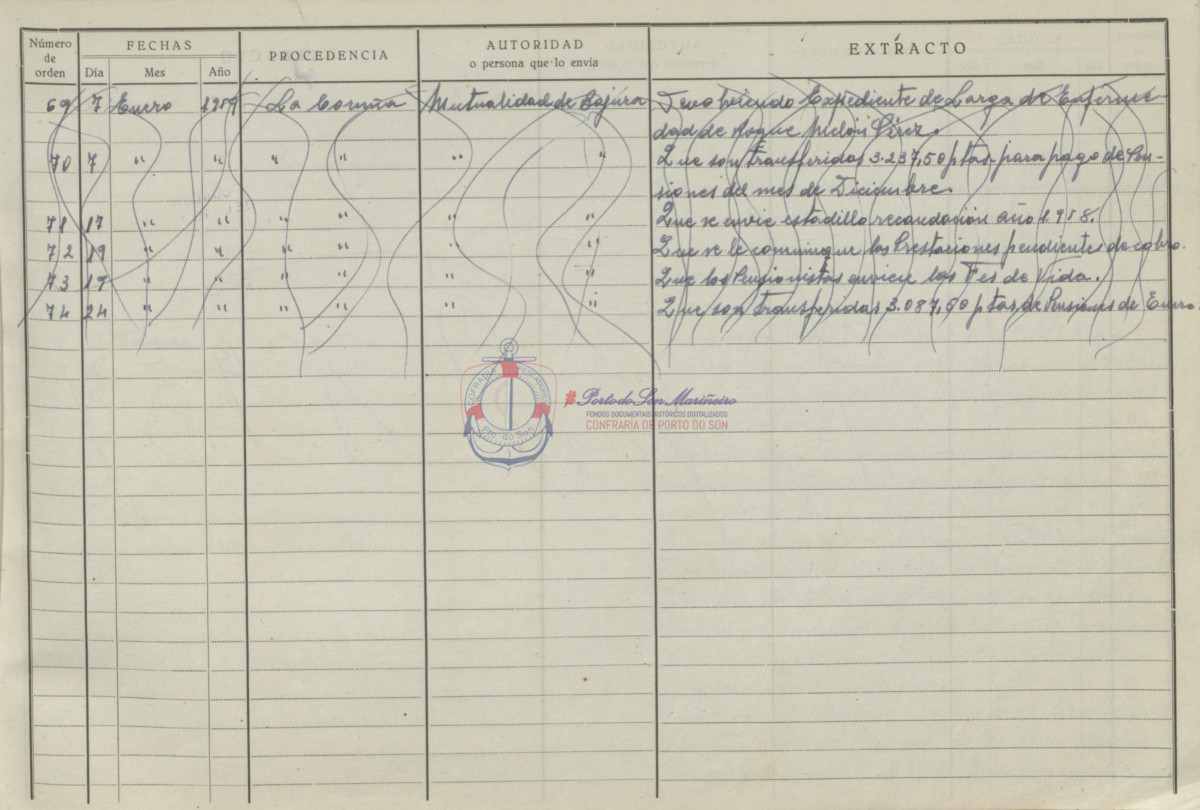 Número de orden
FECHAS
Día Mes Año
PROCEDENCIA
AUTORIDAD
o persona que lo envía
EXTRACTO
69 7 Enero 1959 La Coruña Mutualidad de Bajura Devolviendo Expediente de Larga de Enferme-
dad de Roque Melón Pérez.
70 7 " " " " " " Que son transferidas 3.237,50 ptas. para pago de Pen-
siones del mes de Diciembre.
71 17 " " " " " " Que se envie estadillo recaudación año 1958.
72 19 " " " " " " Que se le comunique las Prestaciones pendientes de cobro.
73 19 " " " " " " Que los Pensionistas envien las Fes de Vida.
74 24 " " " " " " Que son transferidas 3.087,60 ptas. de Pensiones de Enero
COFRADIA PESCADORES
Pto. do Son
#Porto do Son Mariñeiro
FONDOS DOCUMENTAIS HISTÓRICOS DIXITALIZADOS
CONFRARÍA DE PORTO DO SON